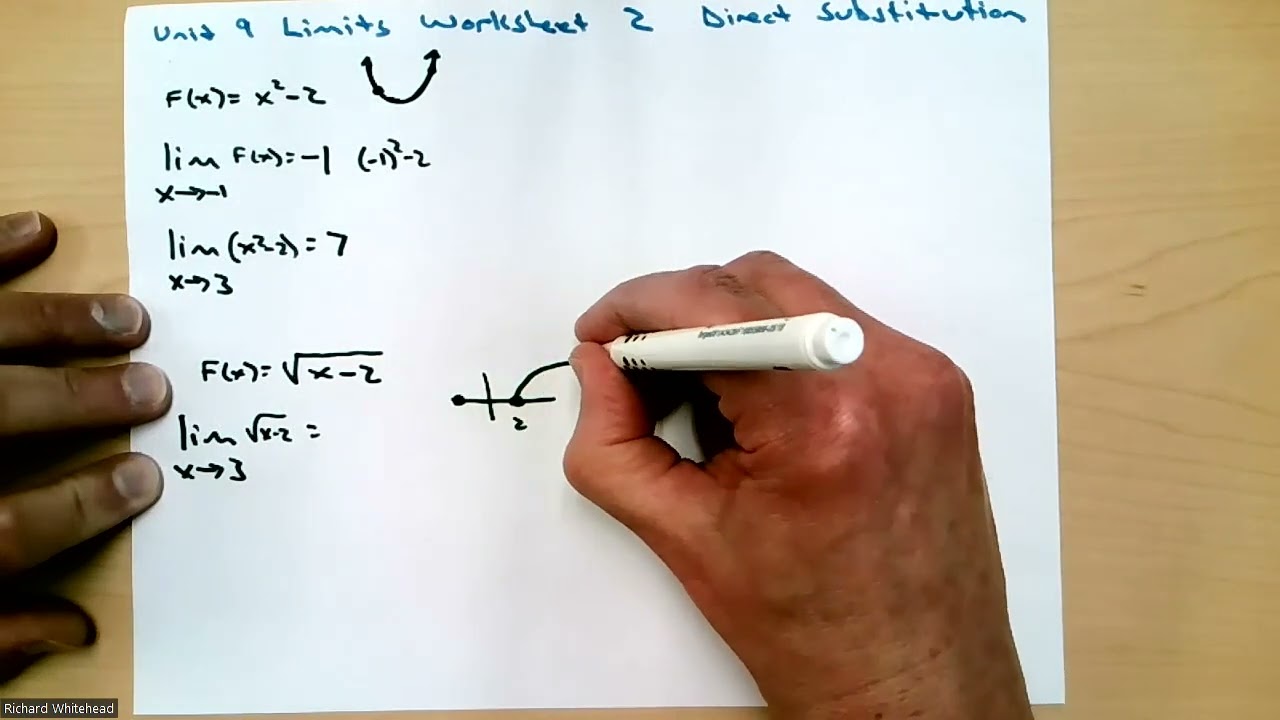 Unit 9 Limits Worksheet 2 Direct Substitution
F(x)= x²-2
lim F(x)= -1 (-1)²-2
x→-1
lim (x²-2) = 7
x→3
F(x)= √x-2
lim √x-2 =
x→3
2
Richard Whitehead